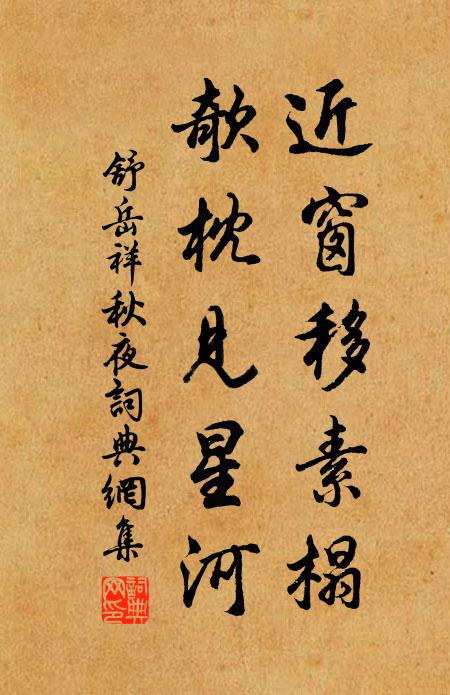 近窗移素榻
欹枕見星河
舒岳祥秋夜詞典網集
詞典网印